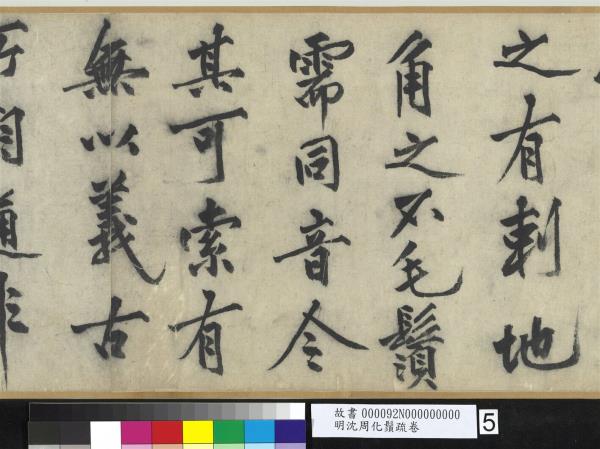 之有刺地
角之不毛鬚
需同音今
其可索有
無以義古
所自道非
故書 000092N000000000
明沈周化鬚疏卷
5